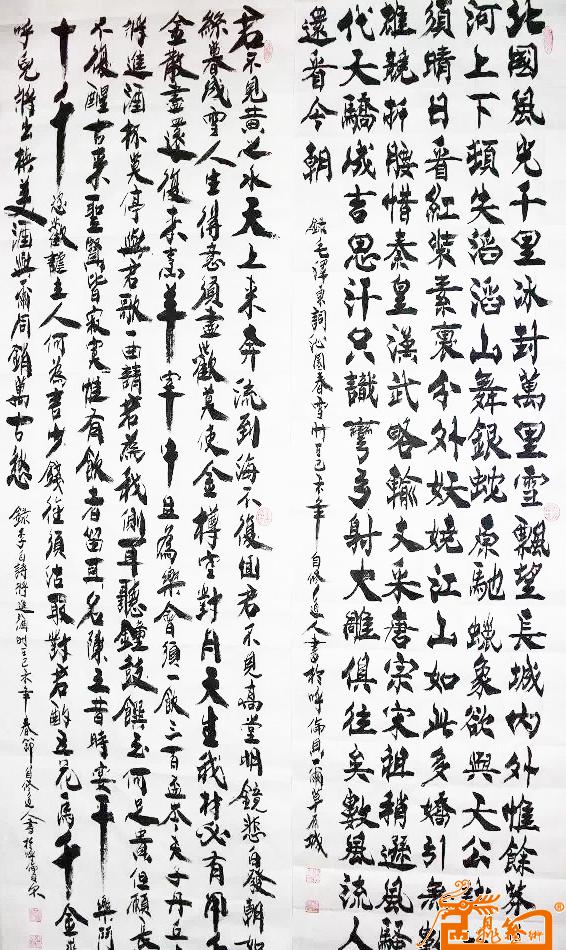 北國風光千里冰封萬里雪飄望長城內外惟餘莽
河上下頓失滔滔山舞銀蛇原馳蠟象欲與天公試
須晴日看紅裝素裹分外妖嬈江山如此多嬌引無
雄競折腰惜秦皇漢武略輸文采唐宗宋祖稍遜風騷
代天驕成吉思汗只識彎弓射大雕俱往矣數風流人
還看今朝
錄毛澤東詞沁園春雪時己未年自修道人書於呼倫貝爾草原城
君不見黃之水天上來奔流到海不復回君不見高堂明鏡悲白發朝如
絲暮成雪人生得意須盡歡莫使金樽空對月天生我材必有用
金散盡還復來烹羊宰牛且為樂會須一飲三百杯岑夫子丹丘
將進酒杯莫停與君歌一曲請君為我側耳聽鐘鼓饌玉何足貴但願長
不復醒古來聖賢皆寂寞惟有飲者留其名陳王昔時宴平樂鬥
十千恣歡謔主人何為言少錢徑須沽取對君酌五花馬千金
呼兒將出換美酒與爾同銷萬古愁
錄李白詩將進酒時己未年春節自修道人書於呼倫貝